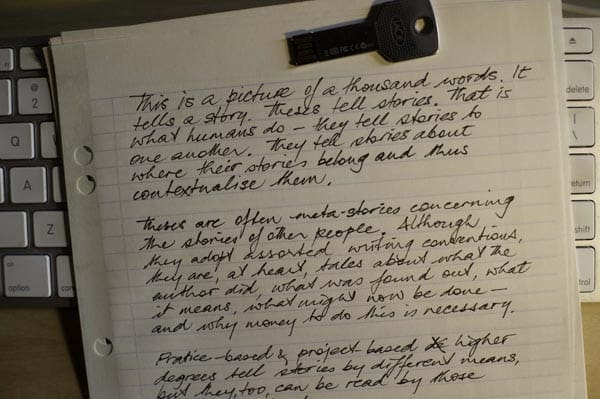 This is a picture of a thousand words. It
tells a story. Theses tell stories. That is
what humans do – they tell stories to
one another. They tell stories about
where their stories belong and thus
contextualise them.
Theses are often meta-stories concerning
the stories of other people. Although
they adopt assorted writing conventions,
they are, at heart, tales about what the
author did, what was found out, what
it means, what might now be done –
and why money to do this is necessary.
Pratice-based & project-based higher
degrees tell stories by different means,
but they, too, can be read by those
LACIE
@
2
Q
A
Z
alt
option
delete
return
shift